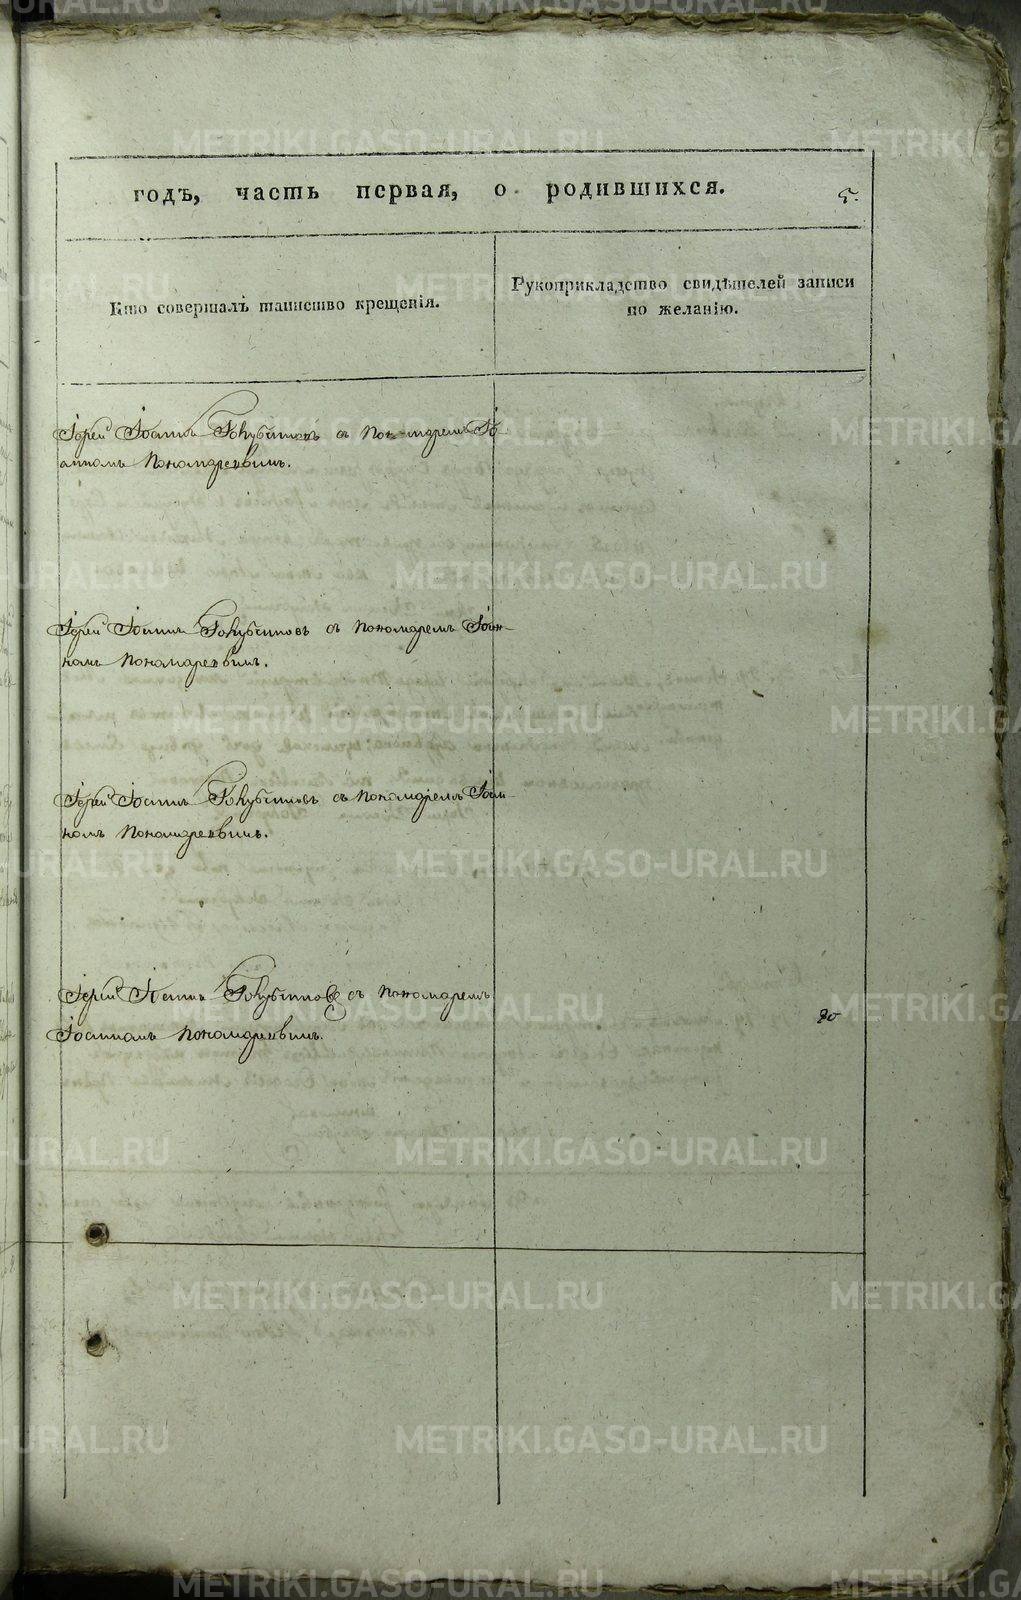 годъ, часть первая, о родившихся.
5.
Кто совершалъ таинство крещенія.
Рукоприкладство свидѣтелей записи
по желанію.
Іерей Іоаннъ Голубчиковъ съ Пономаремъ Іо-
анномъ Пономаревымъ.
Іерей Іоаннъ Голубчиковъ съ пономаремъ Іоан-
номъ Пономаревымъ.
Іерей Іоаннъ Голубчиковъ съ пономаремъ Іоан-
номъ Пономаревымъ.
Іерей Іоаннъ Голубчиковъ съ пономаремъ
Іоанномъ Пономаревымъ.
METRIKI.GASO-URAL.RU